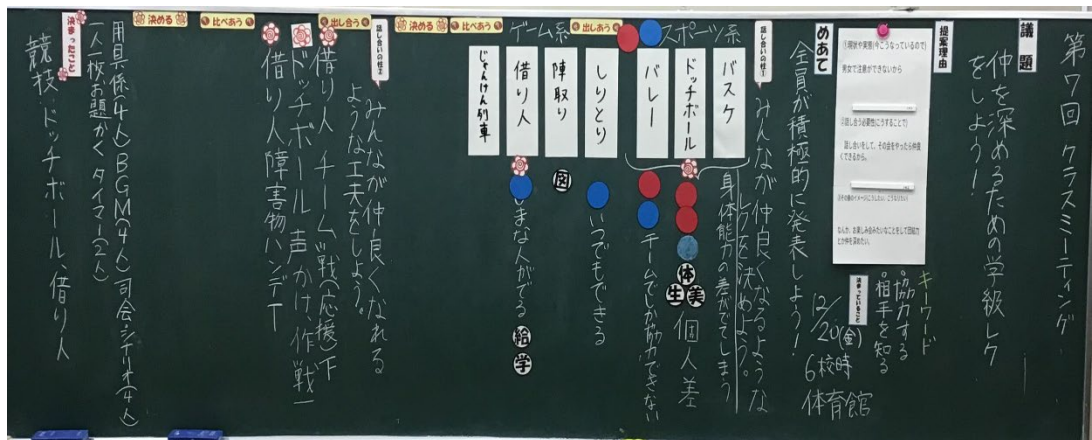 第7回 クラスミーティング
議題
仲を深めるための学級レク
をしよう!
提案理由
①現状や実態(今こうなっているので)
男女で注意ができないから
②話し合う必要性(こうすることで)
話し合いをして、その会をやったら仲良
くできるから。
なんか、お楽しみ会みたいなことをして団結力
とか仲を深めたい。
キーワード
・協力する
・相手を知る
決まっていること
12/20(金)
6校時
体育館
めあて
全員が積極的に発表しよう!
話し合いの柱①
みんなが仲良くなるような
レクを決めよう。
出しあう
比べあう
決める
スポーツ系
バスケ
身体能力の差がでてしまう
ドッチボール
体
美
生
個人差
バレー
チームでしか協力できない
ゲーム系
しりとり
いつでもできる
陣取り
図
借り人
ひまな人がでる
絵
学
じゃんけん列車
話し合いの柱②
みんなが仲良くなれる
ような工夫をしよう。
出し合う
比べあう
決める
借り人 チーム戦(応援)下
ドッチボール 声かけ作戦
借り人障害物ハンデ
決まったこと
用具係(4人)BGM(4人)司会シナリオ(4人)
一人一枚お題かく タイマー(2人)
競技:ドッチボール、借り人